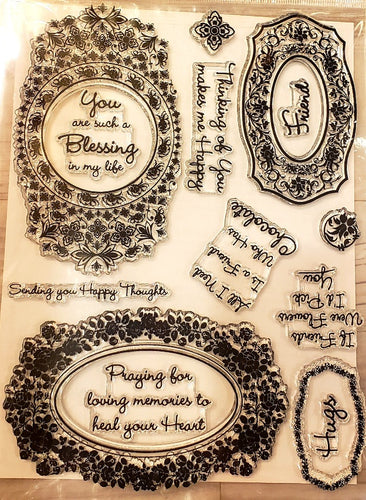 You
are such a
Blessing
in my life
Thinking of You
makes me Happy
Friend
All I Need
Is a Friend
Who Has
Chocolate
Sending you Happy Thoughts
If Friends
Were Flowers
I'd Pick
You
Praying for
loving memories to
heal your Heart
Hugs